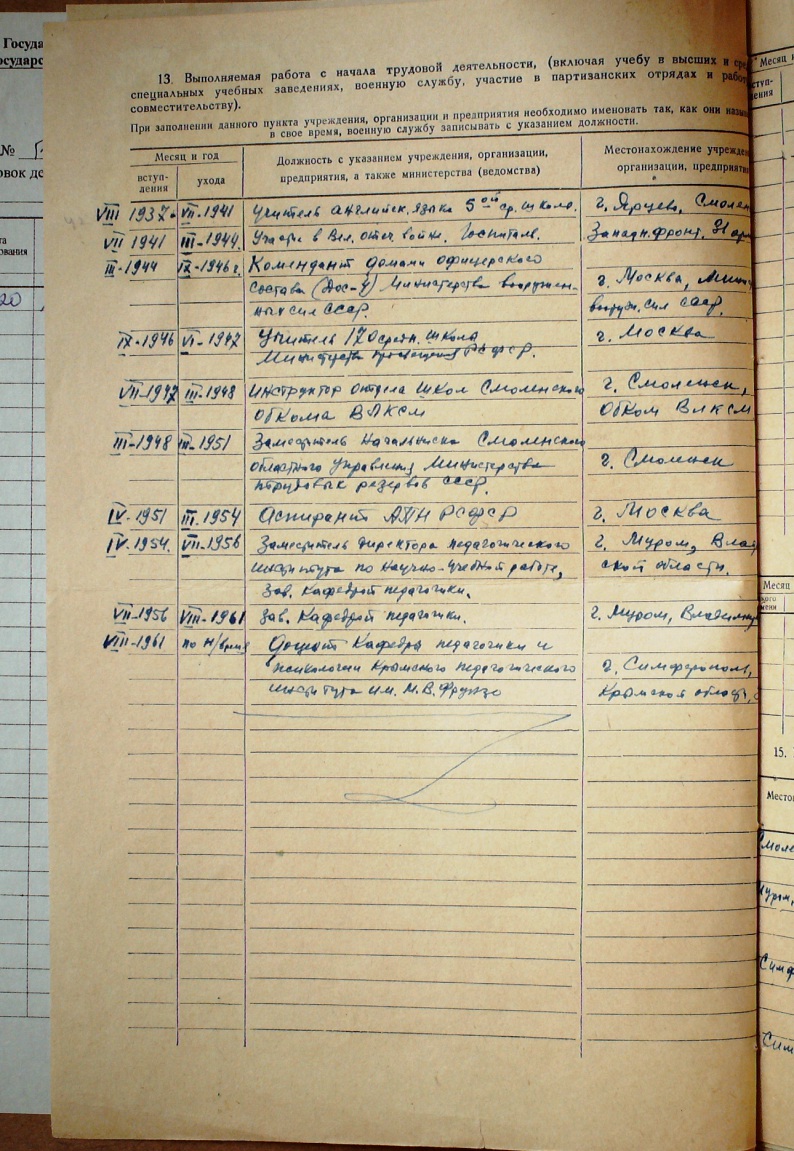 Госуда
осударс
№
овок де
та
ования
20
13. Выполняемая работа с начала трудовой деятельности, (включая учебу в высших и сре
специальных учебных заведениях, военную службу, участие в партизанских отрядах и рабо
совместительству).
При заполнении данного пункта учреждения, организации и предприятия необходимо именовать так, как они назы
в свое время, военную службу записывать с указанием должности.
Месяц и год
вступ-
ления
ухода
Должность с указанием учреждения, организации,
предприятия, а также министерства (ведомства)
Местонахождение учрежде
организации, предприяти
VIII 1937. VII-1941 Учитель английск. языка 5ой ср. школа. г. Ярцево, Смолен
VII 1941 III-1944. Участие в Вел. отеч. войне. Госпиталь. Западн. фронт. 31 арм
III-1944 IX-1946 г. Комендант домами офицерского
состава (Дос-4) Министерства вооружен- г. Москва, Мин
ных сил СССР. вооруж. сил СССР.
IX-1946 VI-1947 Учитель 170 средн. школа г. Москва
Министерства просвещения РСФСР.
VII-1947 III-1948 Инструктор отдела школ Смоленского г. Смоленск,
обкома ВЛКСМ обком ВЛКСМ
III-1948 III-1951 Заместитель Начальника Смоленского
областного Управления Министерства г. Смоленск
трудовых резервов СССР.
IV-1951 III-1954 Аспирант АПН РСФСР г. Москва
IV-1954. VII-1956 Заместитель директора педагогического г. Муром, Влад
института по научно-учебной работе, ской области.
Зав. кафедрой педагогики.
VII-1956 VIII-1961 Зав. кафедрой педагогики. г. Муром, Владимир
VIII-1961 по н/время Доцент кафедры педагогики и
психологии Крымского педагогического г. Симферополь,
института им. М. В. Фрунзе Крымской области,
Месяц и
ступ-
ения
Месяц
ного
мени
15.
Место
Смоле
Муром,
Симф
Сим